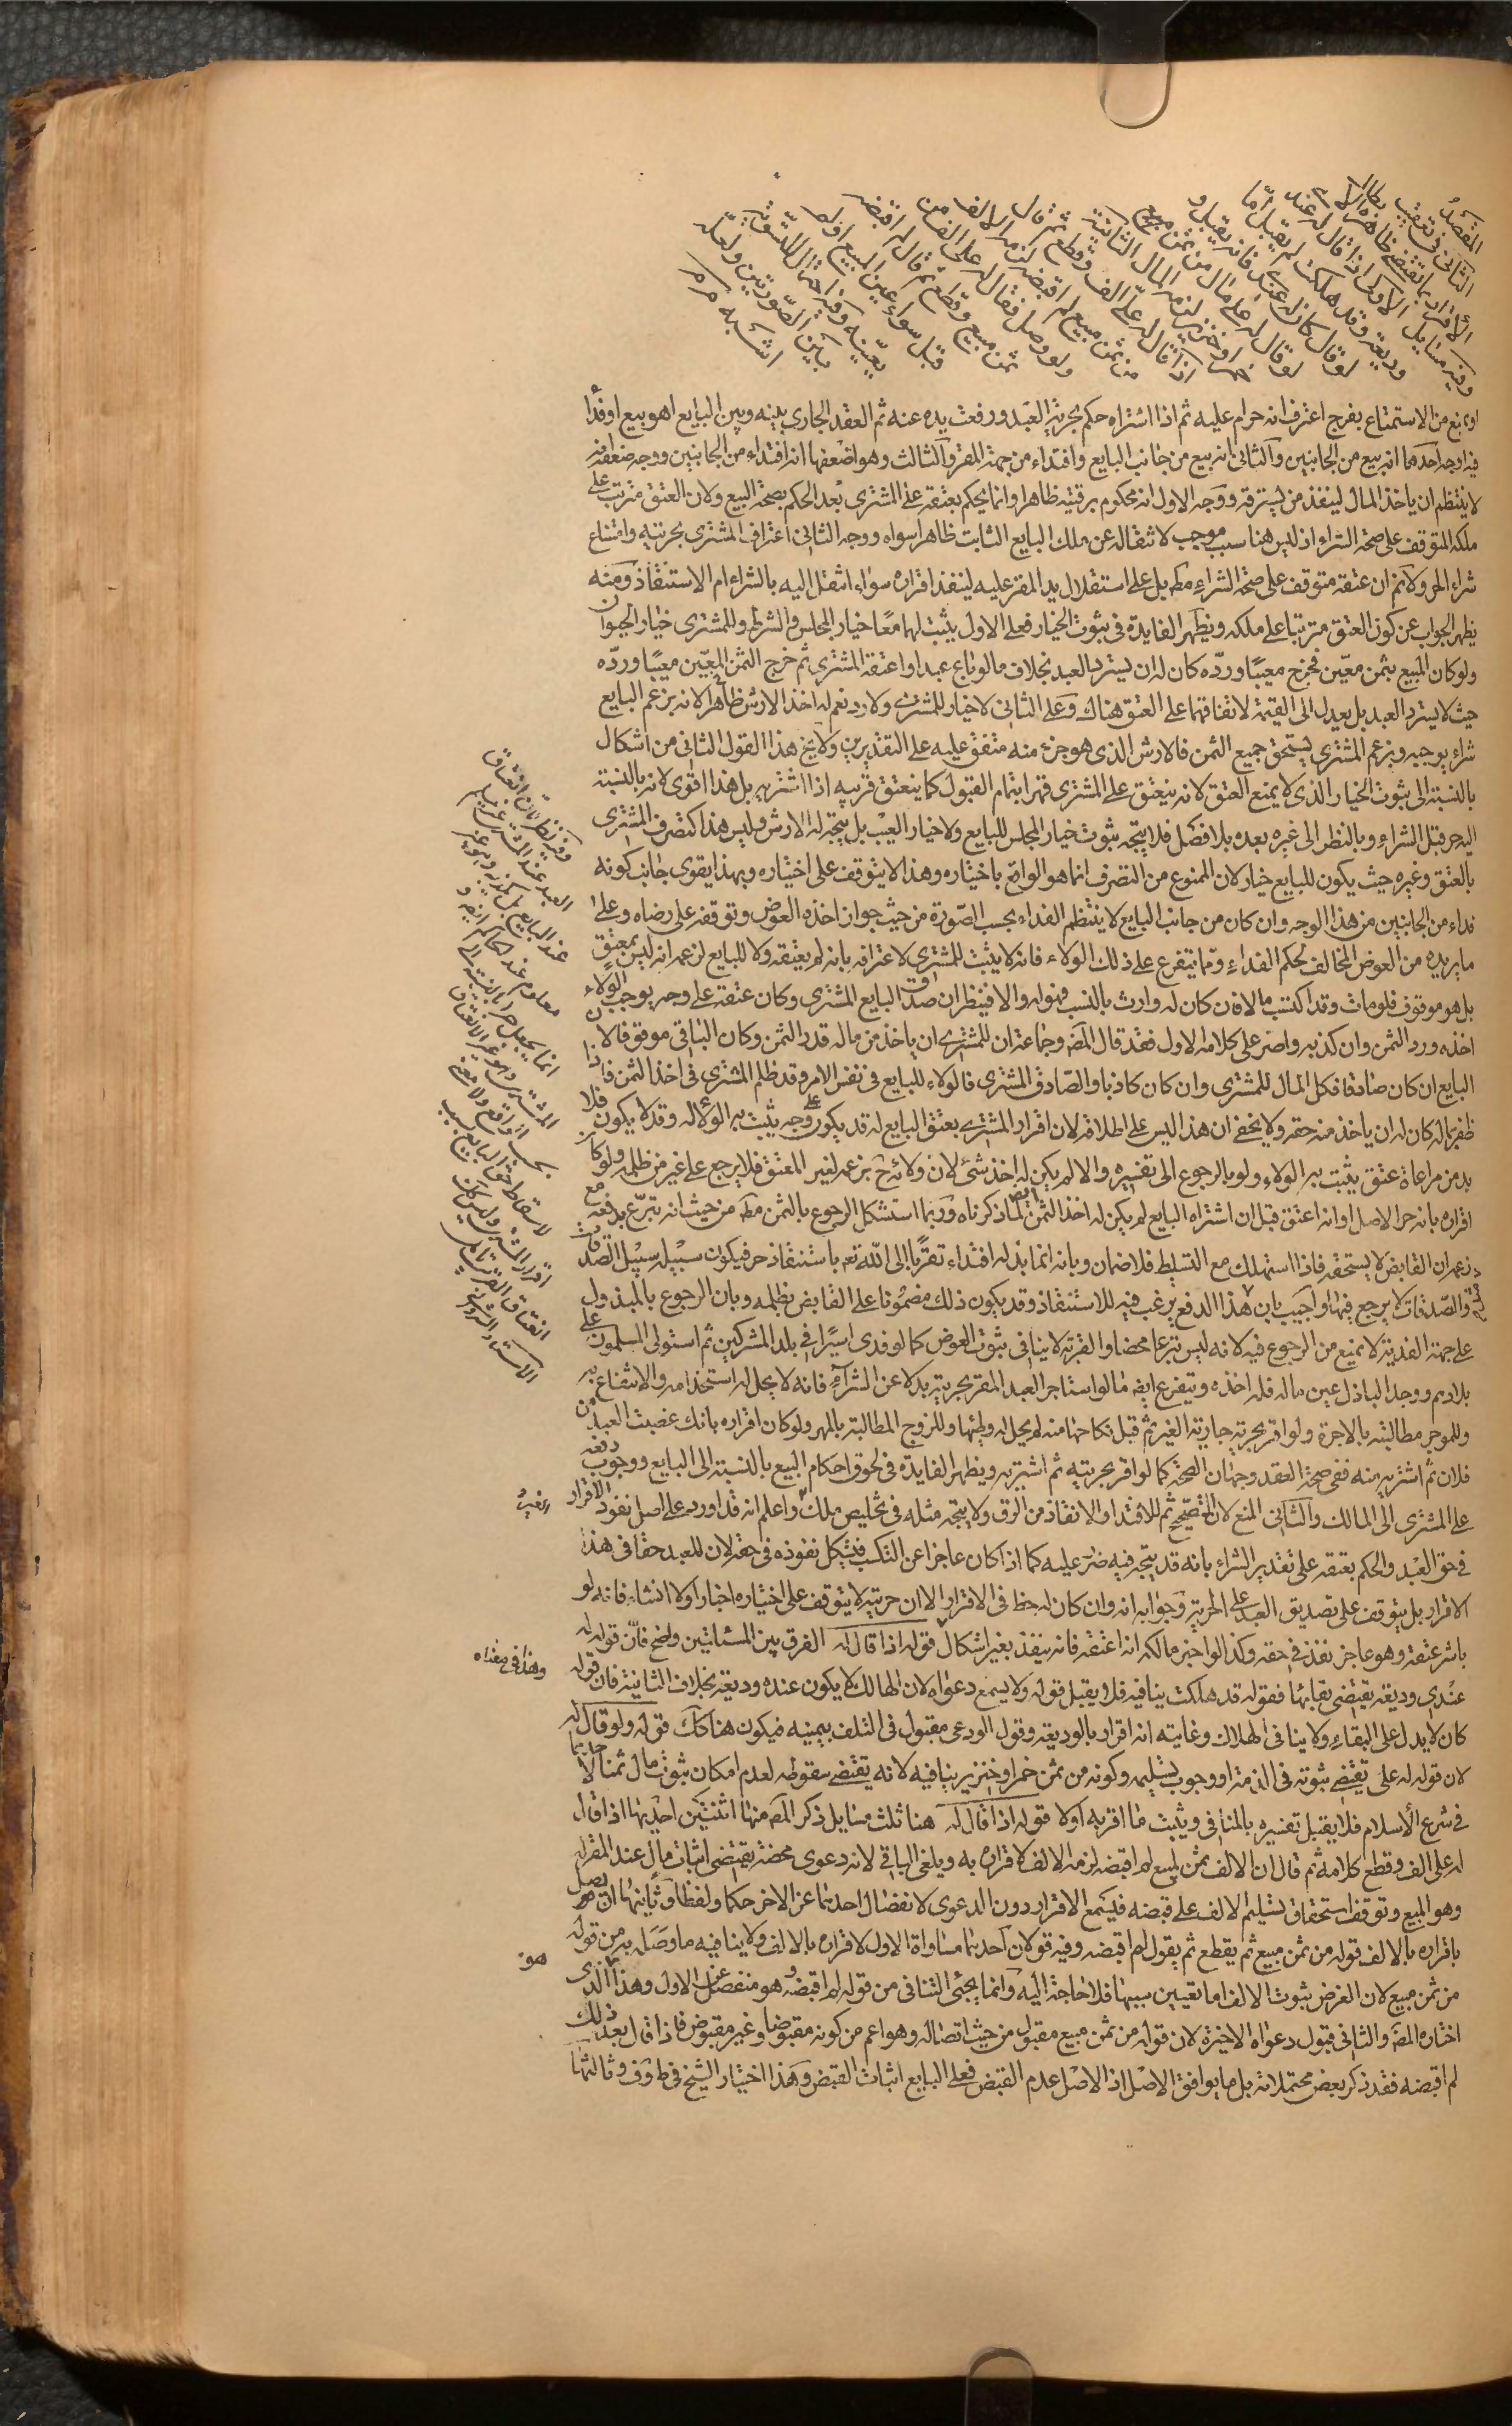 المقصد
الثاني في تعقيب
الأقرار بما يقتضي ظاهره الأبطال
وفيه مسايل الأولى اذا قال له عندي
وديعة وقد هلكت لم يقبل أما
لو قال كان له عندي فانه يقبل و
لو قال له علي مال من ثمن
خمر او خنزير لزمه المال الثانية
اذا قال له علي الف وقطع ثم قال
من ثمن مبيع لم اقبضه لزمه الالف
ولو وصل فقال له علي الف من
ثمن مبيع وقطع ثم قال لم اقبضه
قبل سواء عين المبيع او لم
يعينه وفيه احتمال للتسوية
بين الصورتين ولعله
اشبه
او يمنع من الاستمتاع بفرج اعترف انه حرام عليه ثم اذا اشتراه حكم بحرية العبد ورفعت يده عنه ثم العقد الجاري بينه وبين البايع اهو بيع او فداء
فيه اوجه احدها انه بيع من الجانبين والثاني انه بيع من جانب البايع وافتداء من جهة المقر والثالث وهو اضعفها انه افتداء من الجانبين ووجه ضعفه انه
لا ينتظم ان ياخذ المال لينفذ من يسترقه ووجه الاول انه محكوم برقيته ظاهرا وانما يحكم بعتقه على المشتري بعد الحكم بصحة البيع ولان العتق مترتب على
ملكه المتوقف على صحة الشراء اذ ليس هنا سبب موجب لانتقاله عن ملك البايع الثابت ظاهرا سواه ووجه الثاني اعتراف المشتري بحريته وامتناع
شراء الحر ولانم ان عتقه متوقف على صحة الشراء مط بل على استقلال يد المقر عليه لينفذ اقراره سواء انتقل اليه بالشراء ام الاستنقاذ ومنه
يظهر الجواب عن كون العتق مترتبا على ملكه ويظهر الفايدة في ثبوت الخيار فعلى الاول يثبت لهما معا خيار المجلس والشرط وللمشتري خيار الحيوان
ولو كان المبيع بثمن معين فخرج معيبا ورده كان له ان يسترد العبد بخلاف ما لو باع عبدا واعتقه المشتري ثم خرج الثمن المعين معيبا ورده
حيث لا يسترد العبد بل يعدل الى القيمة لاتفاقهما على العتق هناك وعلى الثاني لا خيار للمشتري ولا رد نعم له اخذ الارش ظاهرا لانه بزعم البايع
شراء يوجبه وبزعم المشتري يستحق جميع الثمن فالارش الذي هو جزء منه متفق عليه على التقديرين ولا يخ هذا القول الثاني من اشكال
بالنسبة الى ثبوت الخيار الذي لا يمنع العتق لانه ينعتق على المشتري قهرا بتمام القبول كما ينعتق قريبه اذا اشتريه بل هذا اقوى لانه بالنسبة
اليه حر قبل الشراء وبالنظر الى غيره بعده بلا فصل فلا يتجه ثبوت خيار المجلس للبايع ولا خيار العيب بل يتجه له الارش وليس هذا كتصرف المشتري
بالعتق وغيره حيث يكون للبايع خيار لان الممنوع من التصرف انما هو الواقع باختياره وهذا لا يتوقف على اختياره وبهذا يقوى جانب كونه
فداء من الجانبين من هذا الوجه وان كان من جانب البايع لا ينتظم الفداء بحسب الصورة من حيث جواز اخذه العوض وتوقفه على رضاه وعلى
ما يريده من العوض المخالف لحكم الفداء ومما يتفرع على ذلك الولاء فانه لا يثبت للمشتري لاعترافه بانه لم يعتقه ولا للبايع لزعمه انه ليس بمعتق
بل هو موقوف فلو مات وقد اكتسب مالا فان كان له وارث بالنسب فهو له والا فينظر ان صدق البايع المشتري وكان عتقه على وجه يوجب الولاء
اخذه ورد الثمن وان كذبه واصر على كلامه الاول فقد قال المص وجماعة ان للمشتري ان ياخذ من ماله قدر الثمن وكان الباقي موقوفا لان
البايع ان كان صادقا فكل المال للمشتري وان كان كاذبا والصادق المشتري فالولاء للبايع في نفس الامر وقد ظلم المشتري في اخذ الثمن فاذا
ظفر بماله كان له ان ياخذ منه حقه ولا يخفى ان هذا ليس على اطلاقه لان اقرار المشتري بعتق البايع له قد يكون على وجه يثبت به الولاء له وقد لا يكون فلا
بد من مراعاة عتق يثبت به الولاء ولو بالرجوع الى تفسيره والا لم يكن له اخذ شئ لان ولائه ح بزعمه لغير المعتق فلا يرجع على غير من ظلمه ولو كان
اقراره بانه حر الاصل او انه اعتق قبل ان اشتراه البايع لم يكن له اخذ الثمن ايض لما ذكرناه وربما استشكل الرجوع بالثمن مط من حيث انه تبرع بدفعه مع
زعمه ان القابض لا يستحقه فاذا استهلك مع التسليط فلا ضمان وبانه انما بذله افتداء تقربا الى الله تعه باستنقاذ حر فيكون سبيله سبيل الصدقات
والصدقات لا يرجع فيها واجيب بان هذا الدفع يرغب فيه للاستنقاذ وقد يكون ذلك مضمونا على القابض بظلمه وبان الرجوع بالمبذول
على جهة الفدية لا تمنع من الرجوع فيه لانه ليس تبرعا محضا والقربة لا ينافي ثبوت العوض كما لو فدى اسيرا في بلد المشركين ثم استولى المسلمون على
بلادهم ووجد الباذل عين ماله فله اخذه ويتفرع ايض ما لو استاجر العبد المقر بحريته بدلا عن الشراء فانه لا يحل له استخدامه والانتفاع به
وللموجر مطالبته بالاجرة ولو اقر بحرية جارية الغير ثم قبل نكاحها منه لم يحل له وطئها وللزوج المطالبة بالمهر ولو كان اقراره بانك غصبت العبد من
فلان ثم اشتريه منه ففي صحة العقد وجهان الصحة كما لو اقر بحريته ثم اشتريه ويظهر الفايدة في لحوق احكام البيع بالنسبة الى البايع ووجوب دفعه
على المشتري الى المالك والثاني المنع لان التصحيح ثم للافتداء والانقاذ من الرق ولا يتجه مثله في تخليص ملك الغير واعلم انه قد اورد على اصل نفوذ الاقرار
في حق العبد والحكم بعتقه على تقدير الشراء بانه قد يتجه فيه ضرر عليه كما اذا كان عاجزا عن التكسب فيشكل نفوذه في حقه لان للعبد حقا في هذا
الاقرار بل يتوقف على تصديق العبد على الحرية وجوابه انه وان كان له حظ في الاقرار الا ان حريته لا يتوقف على اختياره اخبارا ولا انشاء فانه لو
باشر عتقه وهو عاجز نفذ في حقه وكذا لو اخبر مالكه انه اعتقه فانه ينفذ بغير اشكال وهذا في معناه قوله اذا قال له الفرق بين المسئلتين واضح فان قوله له
عندي وديعة يقتضي بقائها فقوله قد هلكت ينافيه فلا يقبل قوله ولا يسمع دعواه لان الهالك لا يكون عنده وديعة بخلاف الثانية فان قوله
كان لا يدل على البقاء ولا ينافي الهلاك وغايته انه اقرار بالوديعة وقول الودعي مقبول في التلف بيمينه فيكون هنا كك قوله ولو قال له
لان قوله له علي يقتضي ثبوته في الذمة او وجوب تسليمه وكونه من ثمن خمر او خنزير ينافيه لانه يقتضي سقوطه لعدم امكان ثبوت مال ثمنا لاحدهما
في شرع الأسلام فلا يقبل تفسيره بالمنافي ويثبت ما اقر به اولا قوله اذا قال له هنا ثلث مسايل ذكر المص منها اثنتين احديها اذا قال
له علي الف وقطع كلامه ثم قال ان الالف ثمن مبيع لم اقبضه لزمه الالف لاقراره به ويلغى الباقي لانه دعوى محضة يقتضي اثبات مال عند المقر له
وهو المبيع وتوقف استحقاق تسليم الالف على قبضه فيسمع الاقرار دون الدعوى لانفصال احدهما عن الاخر حكما ولفظا وثانيها ان يصل
باقراره بالالف قوله من ثمن مبيع ثم يقطع ثم يقول لم اقبضه وفيه قولان احدهما مساواة الاول لاقراره بالالف ولا ينافيه ما وصله به من قوله
من ثمن مبيع لان الغرض ثبوت الالف اما تعيين سببها فلا حاجة اليه وانما يجئ التنافي من قوله لم اقبضه وهو منفصل عن الاول وهذا هو الذي
اختاره المص والثاني قبول دعواه الاخيرة لان قوله من ثمن مبيع مقبول من حيث اتصاله وهو اعم من كونه مقبوضا وغير مقبوض فاذا قال بعد ذلك
لم اقبضه فقد ذكر بعض محتملاته بل ما يوافق الاصل اذ الاصل عدم القبض فعلى البايع اثبات القبض وهذا اختيار الشيخ في ط وف وثالثها
وفيه نظر لان انعتاق
العبد عند المشتري غير مسلم
عند البايع بل يكذبه وهو غير
معلوم عند الحاكم
انما يجعل حرا بالنسبة الى
المشتري وهو غير الانعتاق
بحسب الواقع ولا معنى
لاسقاط حق البايع بسبب
اقرار المشتري وليس كك
انعتاق القريب
الغير
وهذا في معناه
هو